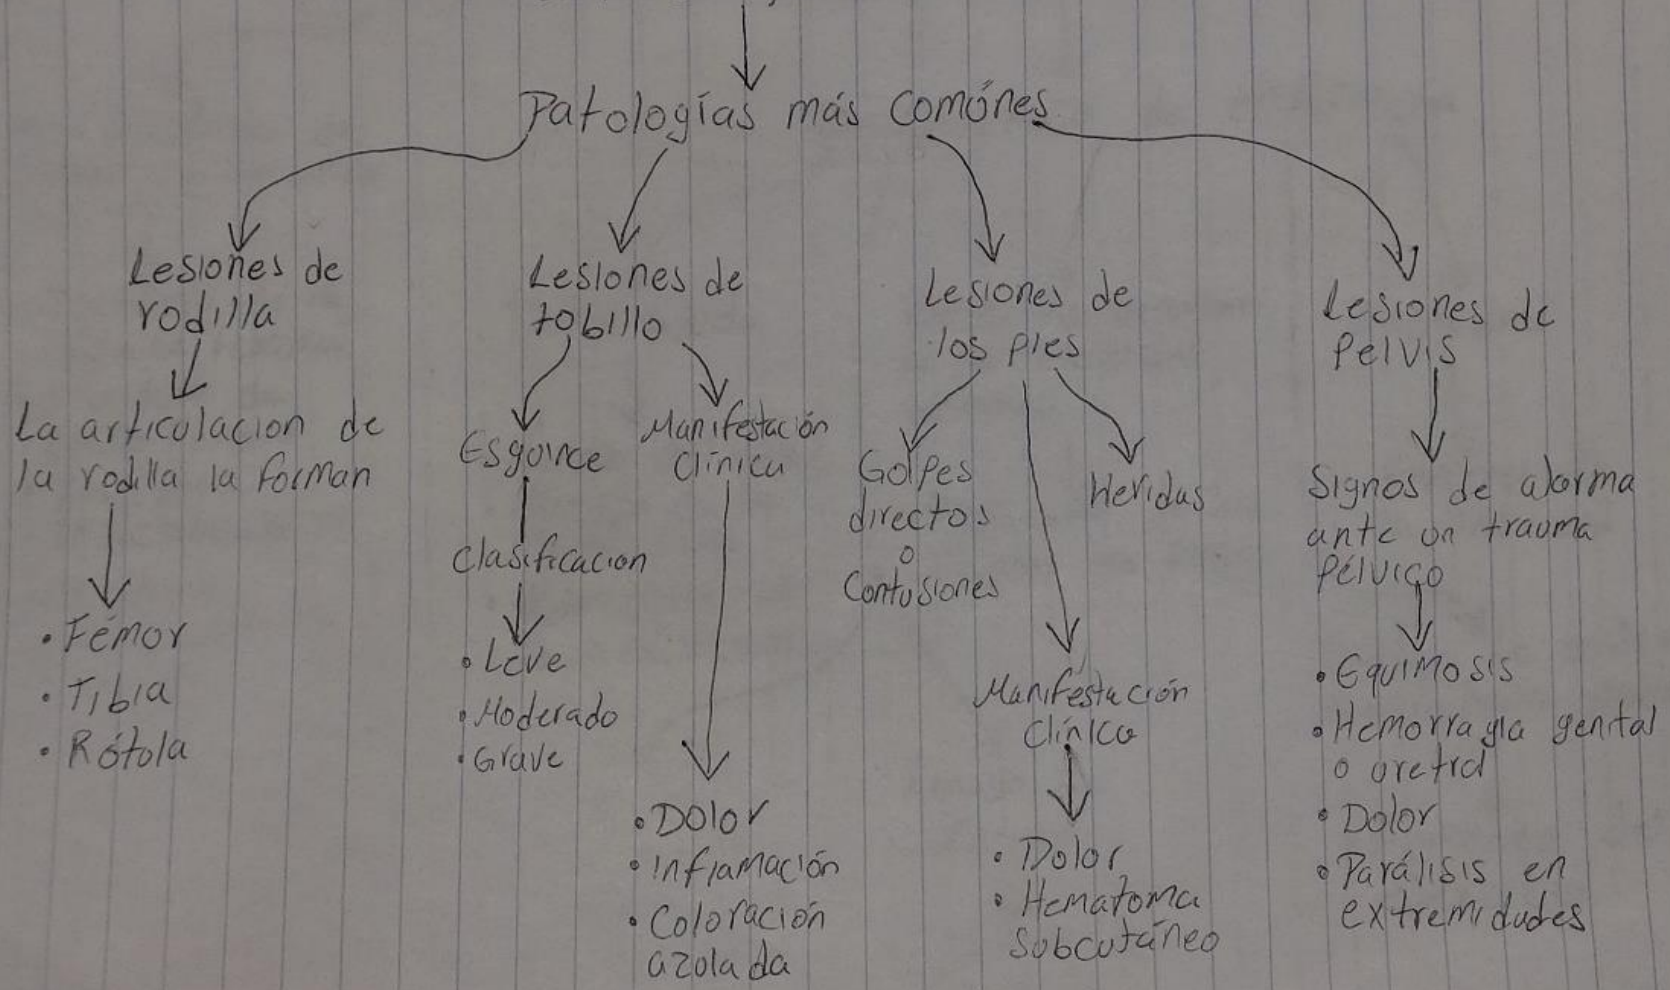 Patologías más comúnes
Lesiones de
rodilla
La articulacion de
la rodilla la forman
• Fémur
• Tibia
• Rótula
Lesiones de
tobillo
Esguince
Clasificacion
• Leve
• Moderado
• Grave
Manifestación
Clínica
• Dolor
• Inflamación
• Coloración
azulada
Lesiones de
los pies
Golpes
directos
o
Contusiones
Manifestación
Clínica
• Dolor
• Hematoma
Subcutáneo
Heridas
Lesiones de
Pelvis
Signos de alarma
ante un trauma
Pélvico
• Equimosis
• Hemorragia genital
o uretral
• Dolor
• Parálisis en
extremidades